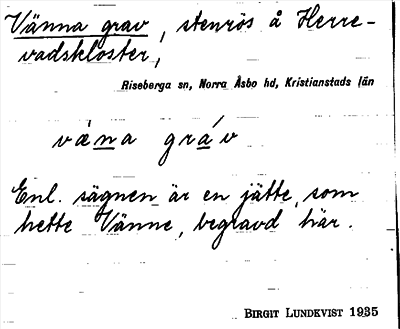 Vänna grav, stenrös å Herre-
vadskloster,
Riseberga sn, Norra Åsbo hd, Kristianstads län
væ̀na gráv
Enl. sägnen är en jätte, som
hette Vänne, begravd här.
BIRGIT LUNDKVIST 1935